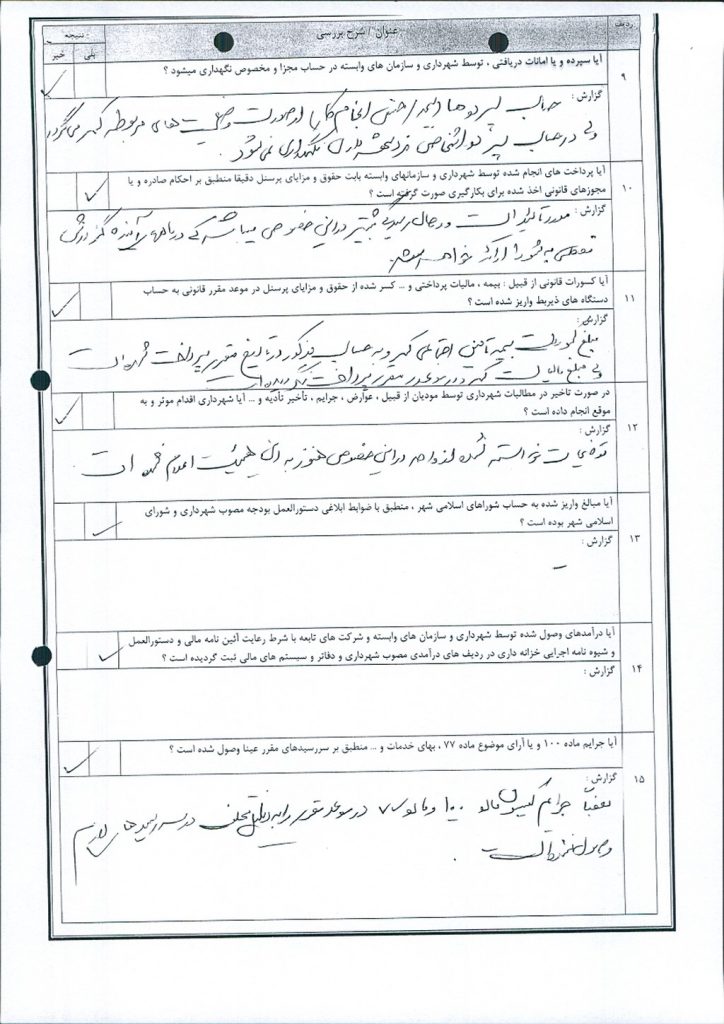 ردیف
عنوان / شرح بررسی
نتیجه
بلی
خیر
۹
آیا سپرده و یا امانات دریافتی ، توسط شهرداری و سازمان های وابسته در حساب مجزا و مخصوص نگهداری میشود ؟
گزارش :
حساب سپرده انجام کار از صورت وضعیت های مربوطه کسر می گردد
ولی در حساب نگهداری نمی شود .
۱۰
آیا پرداخت های انجام شده توسط شهرداری و سازمانهای وابسته بابت حقوق و مزایای پرسنل دقیقا منطبق بر احکام صادره و یا
مجوزهای قانونی اخذ شده برای بکارگیری صورت گرفته است ؟
گزارش :
مورد تائید است و در حال رسیدگی بیشتر در این خصوص میباشد که در آینده گزارش
به شورا ارائه خواهد شد .
۱۱
آیا کسورات قانونی از قبیل : بیمه ، مالیات پرداختی و ... کسر شده از حقوق و مزایای پرسنل در موعد مقرر قانونی به حساب
دستگاه های ذیربط واریز شده است ؟
گزارش :
مبلغ بیمه تامین اجتماعی کسر و به حساب مذکور در تاریخ مقرر پرداخت شده است
ولی مبلغ مالیات کسر و در موعد مقرر پرداخت نگردیده است
۱۲
در صورت تاخیر در مطالبات شهرداری توسط مودیان از قبیل ، عوارض ، جرایم ، تأخیر تأدیه و ... آیا شهرداری اقدام موثر و به
موقع انجام داده است ؟
گزارش :
توضیحات خواسته شده از واحد در این خصوص هنوز به این اعلام نشده است .
۱۳
آیا مبالغ واریز شده به حساب شوراهای اسلامی شهر ، منطبق با ضوابط ابلاغی دستورالعمل بودجه مصوب شهرداری و شورای
اسلامی شهر بوده است ؟
گزارش :
–
۱۴
آیا درآمدهای وصول شده توسط شهرداری و سازمان های وابسته و شرکت های تابعه با شرط رعایت آئین نامه مالی و دستورالعمل
و شیوه نامه اجرایی خزانه داری در ردیف های درآمدی مصوب شهرداری و دفاتر و سیستم های مالی ثبت گردیده است ؟
گزارش :
۱۵
آیا جرایم ماده ۱۰۰ و یا آرای موضوع ماده ۷۷ ، بهای خدمات و ... منطبق بر سررسیدهای مقرر عینا وصول شده است ؟
گزارش :
بعضاً جرائم کمیسیون ماده ۱۰۰ و ماده ۷۷ در موعد مقرر در سررسیدهای لازم
وصول نشده است .